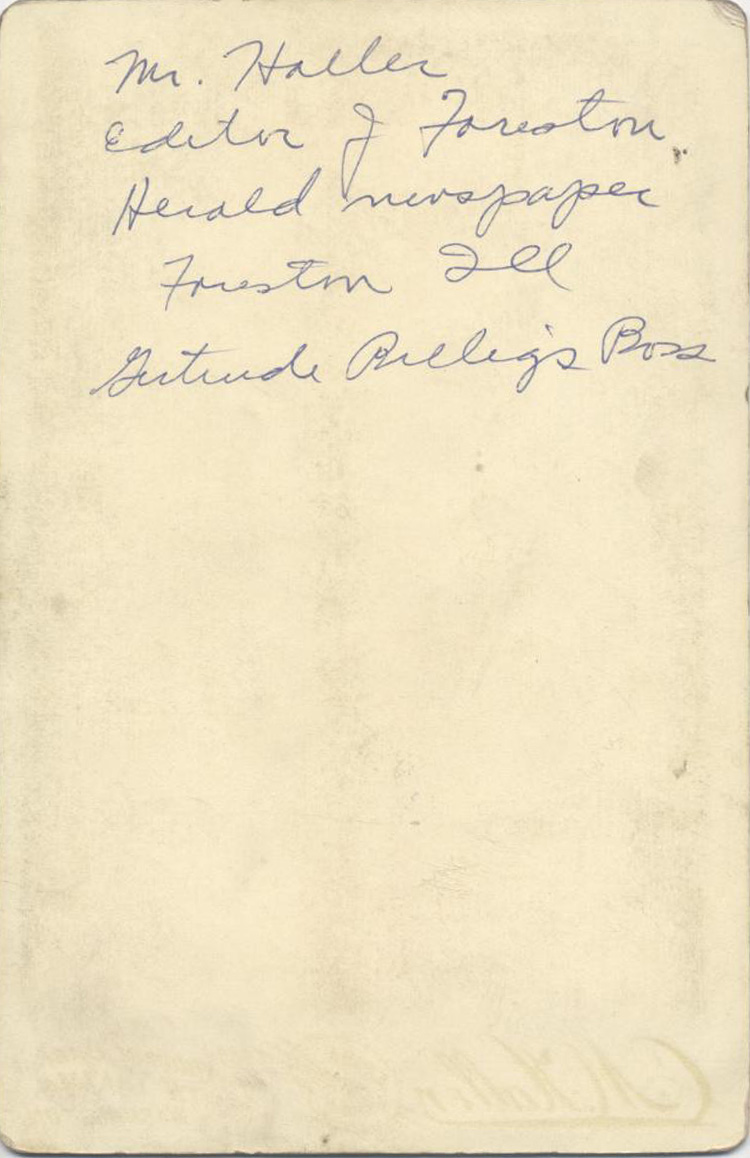 Mr. Haller
Editor of Foreston
Herald newspaper
Foreston Ill
Gertrude Billig's Boss